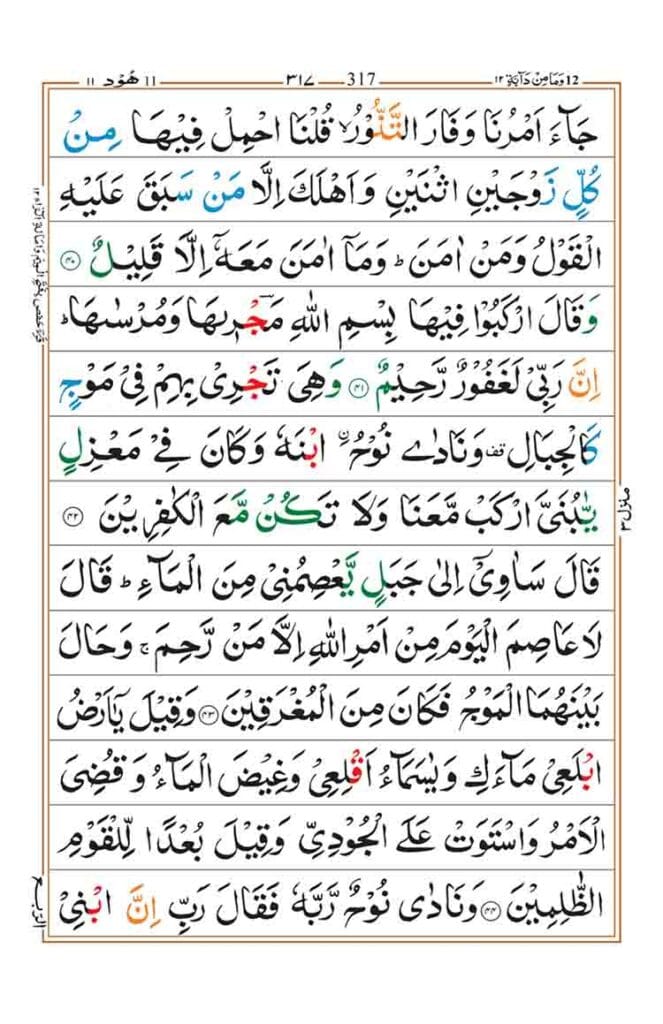 12 وَمَا مِنْ دَآبَّةٍ ١٢
317 ٣١٧
11 هُوْد ١١
جَآءَ اَمْرُنَا وَفَارَ التَّنُّوْرُ ۙ قُلْنَا احْمِلْ فِيْهَا مِنْ
كُلٍّ زَوْجَيْنِ اثْنَيْنِ وَاَهْلَكَ اِلَّا مَنْ سَبَقَ عَلَيْهِ
الْقَوْلُ وَمَنْ اٰمَنَ ؕ وَمَاۤ اٰمَنَ مَعَهٗۤ اِلَّا قَلِيْلٌ ﴿۴۰﴾
وَقَالَ ارْكَبُوْا فِيْهَا بِسْمِ اللّٰهِ مَجْؔرٖىهَا وَمُرْسٰىهَا ؕ
اِنَّ رَبِّىْ لَغَفُوْرٌ رَّحِيْمٌ ﴿۴۱﴾ وَهِىَ تَجْرِىْ بِهِمْ فِىْ مَوْجٍ
كَالْجِبَالِ قف وَنَادٰى نُوْحُ ۨ ابْنَهٗ وَكَانَ فِىْ مَعْزِلٍ
يّٰبُنَىَّ ارْكَبْ مَّعَنَا وَلَا تَكُنْ مَّعَ الْكٰفِرِيْنَ ﴿۴۲﴾
قَالَ سَاٰوِىْۤ اِلٰى جَبَلٍ يَّعْصِمُنِىْ مِنَ الْمَآءِ ؕ قَالَ
لَا عَاصِمَ الْيَوْمَ مِنْ اَمْرِ اللّٰهِ اِلَّا مَنْ رَّحِمَ ۚ وَحَالَ
بَيْنَهُمَا الْمَوْجُ فَكَانَ مِنَ الْمُغْرَقِيْنَ ﴿۴۳﴾ وَقِيْلَ يٰۤاَرْضُ
ابْلَعِىْ مَآءَكِ وَيٰسَمَآءُ اَقْلِعِىْ وَغِيْضَ الْمَآءُ وَقُضِىَ
الْاَمْرُ وَاسْتَوَتْ عَلَى الْجُوْدِىِّ وَقِيْلَ بُعْدًا لِّلْقَوْمِ
الظّٰلِمِيْنَ ﴿۴۴﴾ وَنَادٰى نُوْحٌ رَّبَّهٗ فَقَالَ رَبِّ اِنَّ ابْنِىْ
منزل ٣
الربع